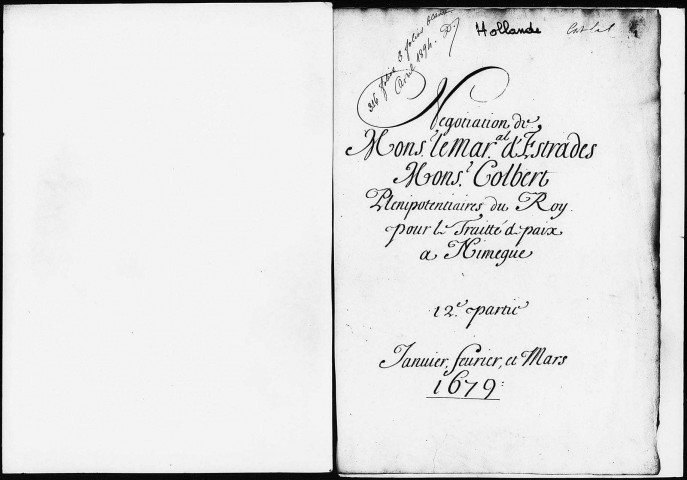 Hollande
316 folios 3 folios
Avril 1894.
Negotiation de
Mons.r le Mar.al d'Estrades
Mons.r Colbert
Plenipotentiaires du Roy
pour le Traitté d paix
a Nimegue
12.e partie
Janvier, feurier, et Mars
1679: